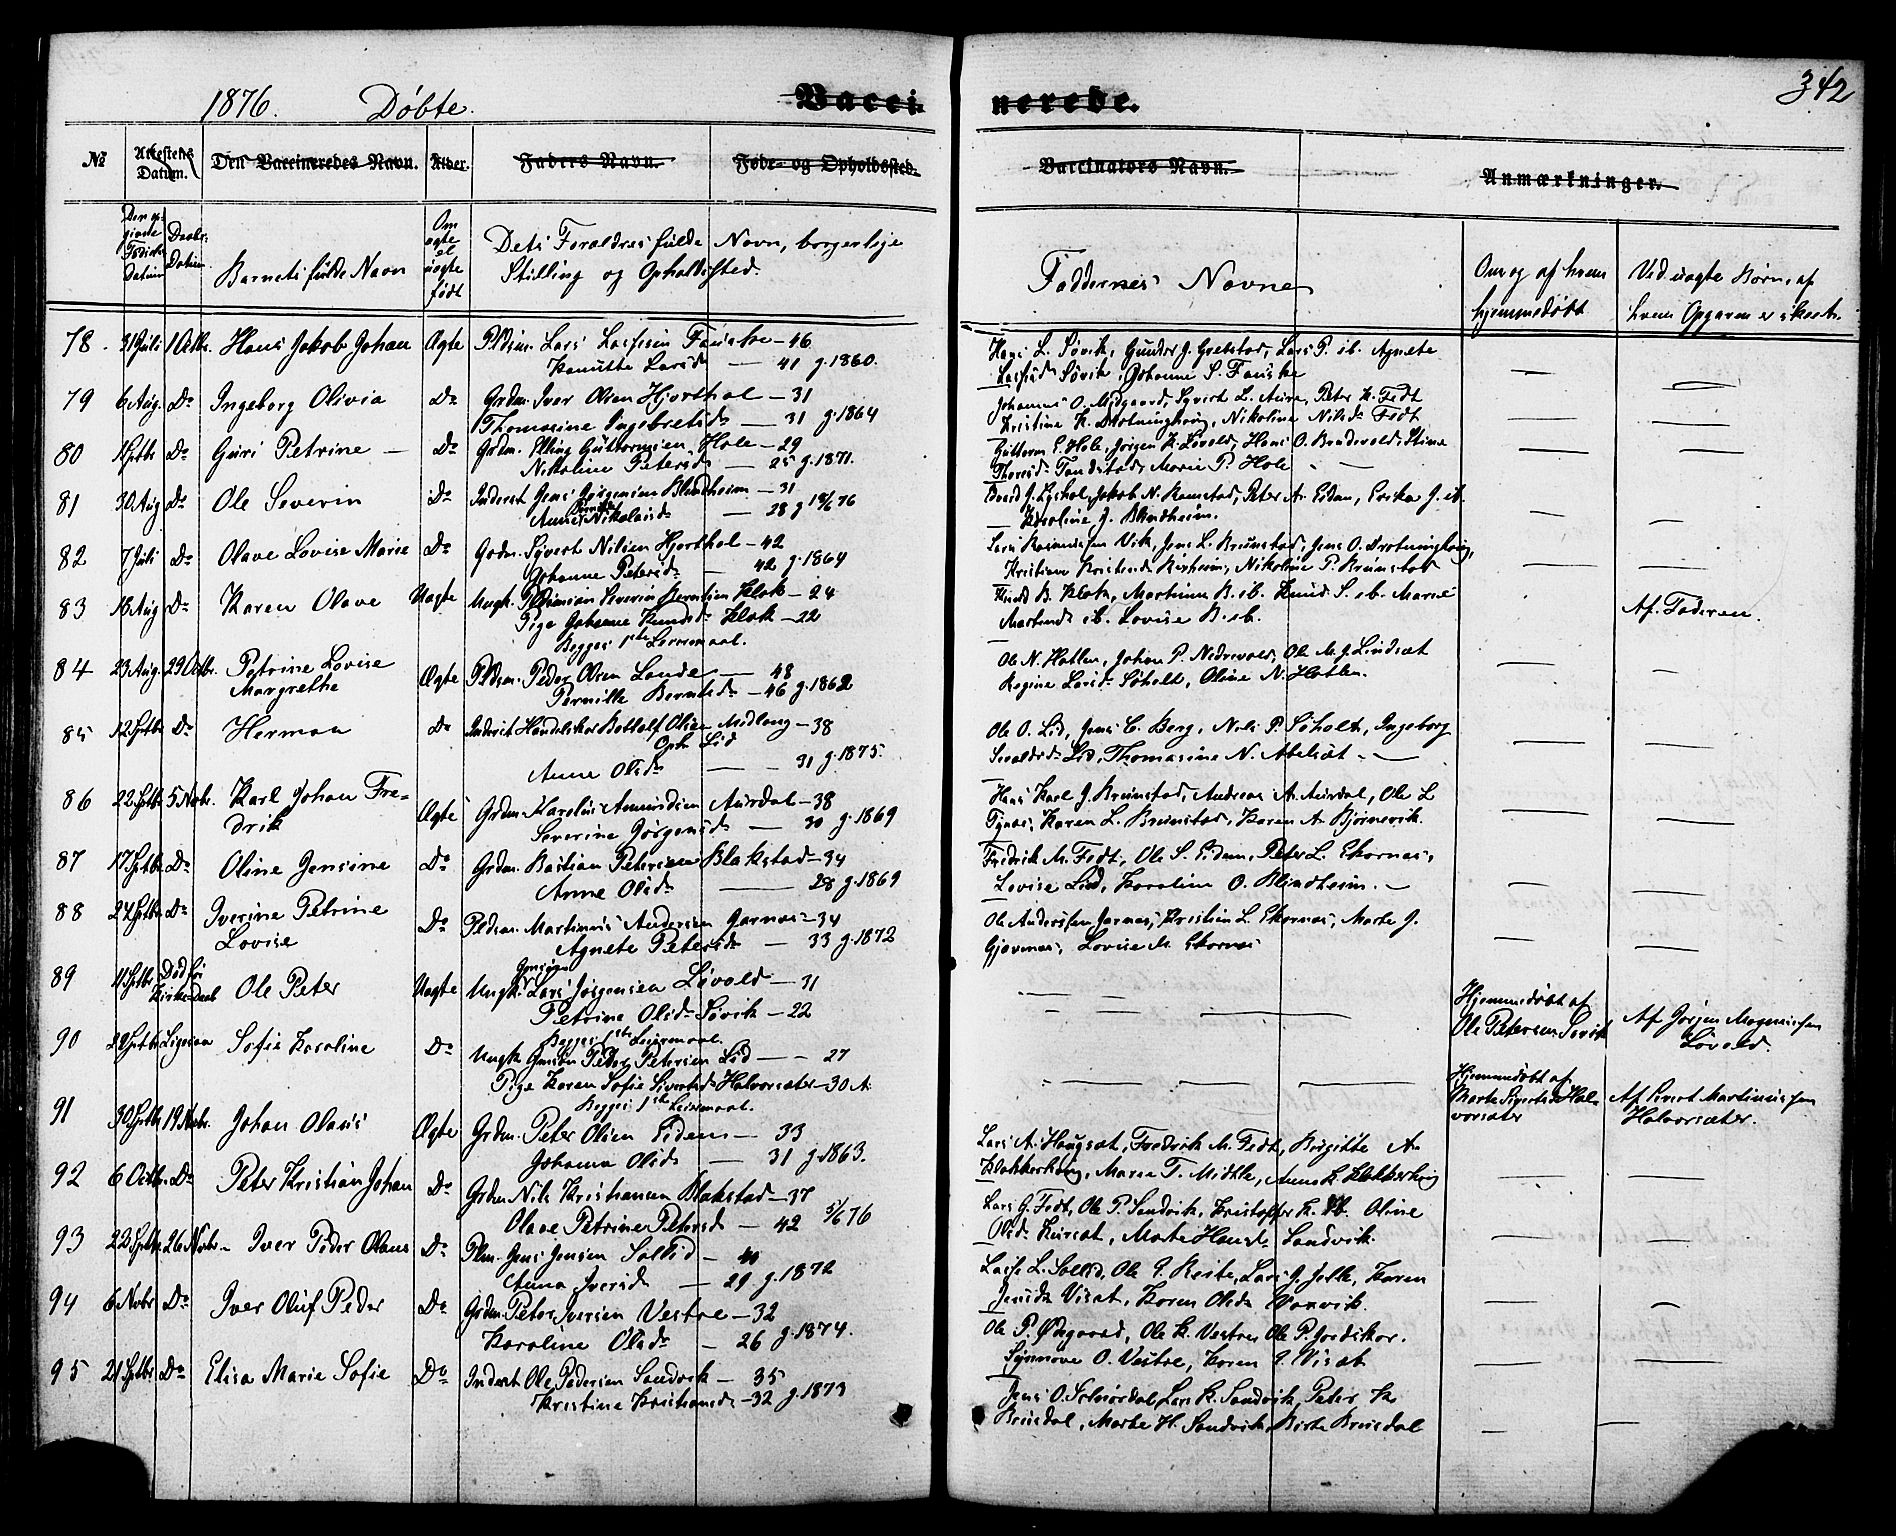 1876. Døbte. Vacci- nerede. 342
№ Attestens Datum. Den Vaccineredes Navn. Alder. Faders Navn. Føde- og Opholdssted. Vaccinators Navn. Anmærkninger.
Barnets fulde Navn
Om ægte el uægte født
Dets Forældres fulde Navn, borgerlige
Stilling og Opholdssted.
Faddernes Navne
Om og af hvem
hjemmedøbt
Ved uægte Børn, af
hvem Opgaven er skeet.
78. 31 Juli 1 Octbr. Hans Jakob Johan Ægte Pldsm. Lars Lassesen Fauske - 46
Knutte Larsd - 41 g. 1860.
Hans L. Søvik, Gunder J. Grebstad, Lars P. ib. Agnete
Søvik, Johanne S. Fauske
79 6 Aug. Do Ingeborg Olivia Do Grdm. Iver Olsen Hjorthol - 31
Thomasine Ingebretsd - 31 g. 1864
Johannes O. Mydgaard, Syvert L. Aure, Peter K. Fedt
Kristine K. Drotninghoug, Nikoline Nilsd. Fedt
80 Sptb Do Guri Petrine - Do Grdm. Elling Guttormsen Hole - 29
Nikoline Petersd - 25 g. 1871.
Guttorm E. Hole, Jørgen K. Løvold, Hans O. Brudevold, Stina
Tandstad, Marie P. Hole
81 30 Aug Do Ole Severin Do Inderst Jens Jørgensen Blindheim - 31
Anne Nikolaisd - 28 g 18/6 76
J. Lyshol, Jakob N. Ramstad, Peter A. Eidem, Erika J. ib.
Karoline J. Blindheim.
82 7 Juli Do Olave Lovise Marie Do Grdm. Syvert Nilsen Hjorthol - 42
Johanne Petersd - 42 g 1864
Lars Rasmussen Vik, Jens L. Brunstad, Jens O. Drotninghoug,
Nikoline P. Brunstad
83 18 Aug Do Karen Olave Uægte Ungk. Severin Berntsen Klok - 24
Pige Johanne Knudsd Klok - 22
Begges 1ste Leiermaal.
Knud B. Klok, Martinus B. ib. Knud S. ib. Marie
Martensd ib. Lovise B. ib.
Af Faderen.
84 23 Aug. 29 Octbr. Petrine Lovise
Margrethe Ægte Pldsm. Peder Olsen Lande - 48
Pernille Berntsd - 46 g. 1862
Ole N. Hatlen, Johan P. Nedrevold, Ole M. J. Lindsæt
Regine Larsd. Søholt, Oline N. Hatlen.
85 12 Sptb Do Herman Do Inderst Handelskar Bottolf Olsen Midlang - 38
Oph. Lid
Anne Olsd - 31 g. 1875.
Ole O. Lid, Jens C. Berg, Nils P. Søholt, Ingeborg
Lid, Thomasine N. Abelsæt -
86 22 Sptb 5 Novbr. Karl Johan Fre-
drik Ægte Grdm. Karolus Amundsen Aurdal - 38
Severine Jørgensd - 30 g. 1869
Hans Karl J. Brunstad, Andreas A. Aurdal, Ole L
Tynæs, Karen L. Brunstad, Karen A. Bjørnevik.
87 17 Sptb Do Oline Jensine Do Grdm. Bastian Petersen Blakstad - 34
Anne Olsd - 28 g. 1869
Fredrik M. Fedt, Ole S. Eidem, Peter L. Ekornæs,
Lovise Lid, Karoline O. Blindheim. -
88 27 Sptb Do Iverine Petrine
Lovise Do Pldsm. Martinus Andersen Jarnæs - 34
Agnete Petersd - 33 g. 1872
Ole Anderssen Jarnæs, Kristian L. Ekornæs, Marte J.
Gjevenæs, Lovise M. Ekornæs
89 11 Sptb Død før
Kirke-Daab Ole Peter Uægte Ungk. Lars Jørgensen Løvold - 31
Petrine Olsd. Søvik - 22
Begges 1ste Leiermaal.
Hjemmedøbt af
Ole Petersen Søvik
Af Jørgen Mogenssen
Løvold.
90 29 Sptb Ligesaa Sofie Karoline Do Ungk. Peder Petersen Lid - 27
Pige Karen Sofie Sivertsd Halvorsæter - 30 A.
Begges 1ste Leiermaal.
Hjemmedøbt af
Marte Sivertsd Hal-
vorsæter
Af Sivert Martinussen
Halvorsæter.
91 30 Sptb 19 Novbr. Johan Olaus Ægte Grdm. Peter Olsen Eidem - 33
Johanna Olsd - 31 g. 1863.
Lars A. Haugsæt, Fredrik M. Fedt, Birgitte A.
Klokkerhoug, Maren T. Midtle, Anne K. Klokkerhoug
92 6 Octbr. Do Peter Kristian Johan Do Grdm Nils Kristiansen Blakstad - 37
Olave Petrine Petersd - 42 5/6 76
Lars G. Fedt, Ole P. Sandvik, Kristoffer K. ib. Oline
Olsd. Kursæt, Marte Hansd. Sandvik.
93 22 Sptb. 26 Novbr - Iver Peder Olaus Do Plm. Jens Jensen Sollid - 40
Anna Iversd - 29 g. 1872
Lasse L. Sollid, Ole J. Reite, Lars J. Jelle, Karen
Jensd. Visæt, Karen Olsd. Vaxvik.
94 6 Novbr Do Iver Oluf Peder Do Grdm. Peter Iversen Vestre - 32
Karoline Olsd. - 26 g. 1874.
Ole P. Ødegaard, Ole K. Vestre, Ole P. Jordskar.
Synnøve O. Vestre, Karen J. Visæt
95 21 Sptbr Do Elisa Marie Sofie Do Inderst Ole Pedersen Sandvik - 35
Kristine Kristiansd - 32 g. 1873
Jens O. Solnørdal, Lars K. Sandvik, Peter K
Brusdal, Marte H. Sandvik, Berte Brusdal